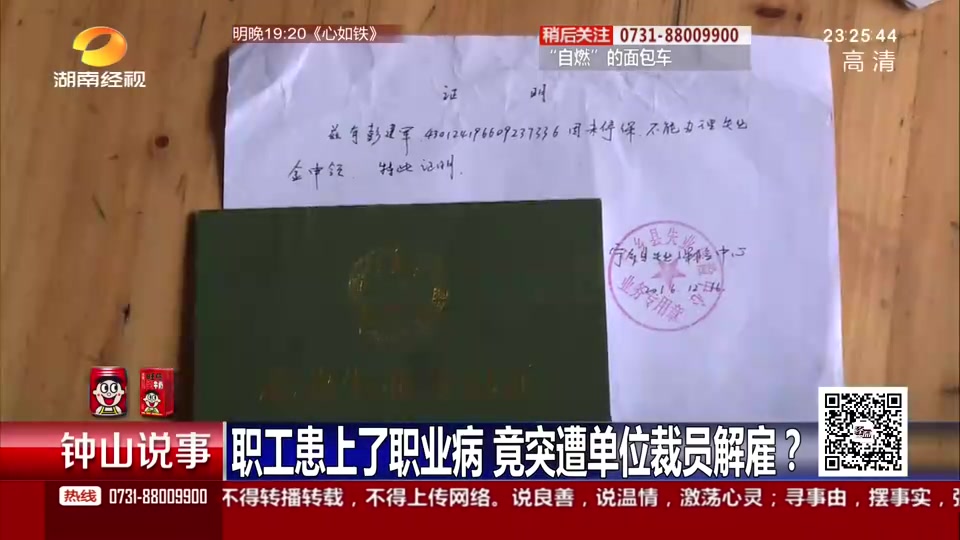 明晚19:20《心如铁》
稍后关注 0731-88009900
“自燃”的面包车
23:25:44
高清
湖南经视
证 明
兹有彭建军,430124196609237336因未停保,不能办理失业
金申领. 特此证明.
宁乡县失业保险中心
业务专用章
钟山说事
职工患上了职业病 竟突遭单位裁员解雇?
热线 0731-88009900 不得转播转载,不得上传网络。说良善,说温情,激荡心灵;寻事由,摆事实,